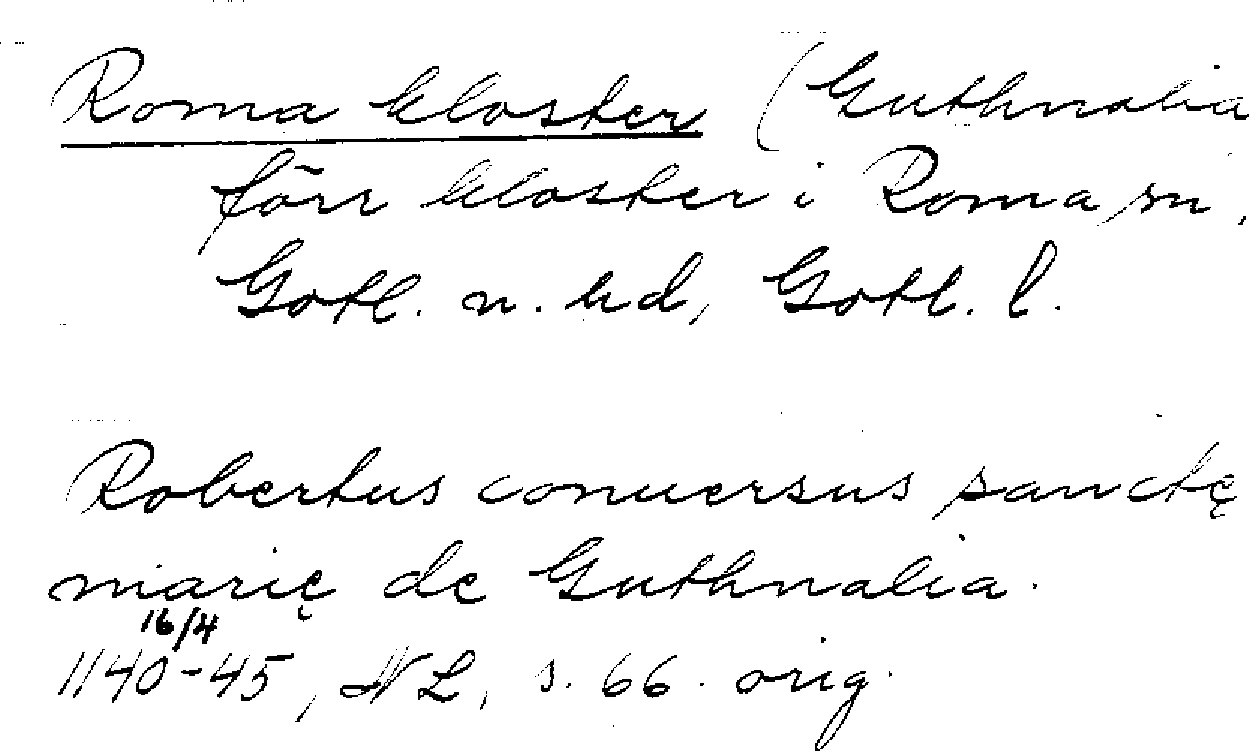 Roma kloster (Guthnalia
förr kloster i Roma sn,
Gotl. n. hd, Gotl. l.
Robertus conuersus sanctę
marię de Guthnalia.
16/4
1140-45, NL, s. 66. orig.